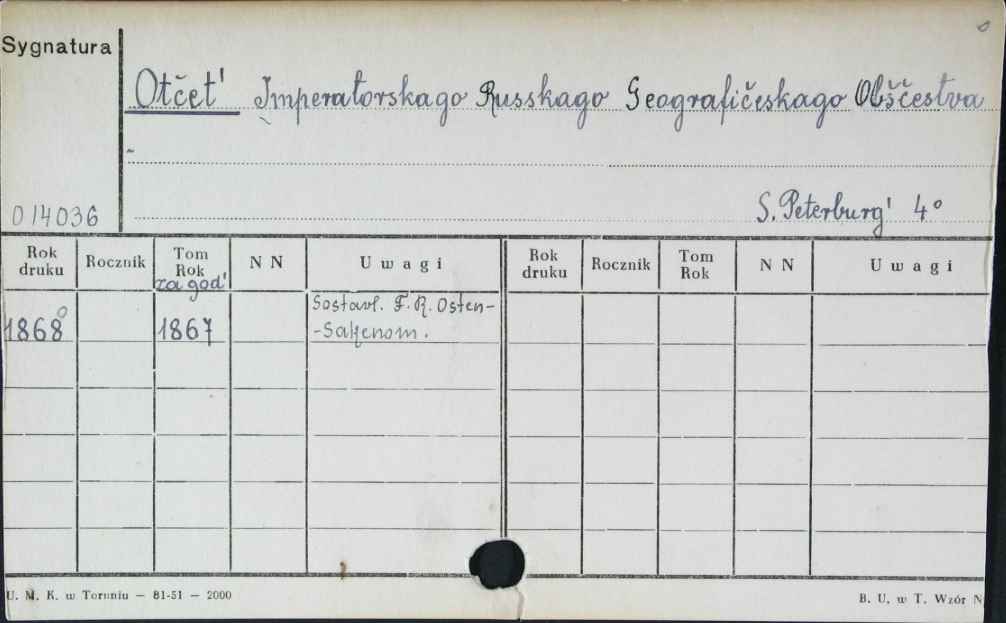 Sygnatura
Otčet' Imperatorskago Russkago Geografičeskago Obščestva
014036
S. Peterburg' 4°
Rok druku Rocznik Tom Rok N N Uwagi Rok druku Rocznik Tom Rok N N Uwagi
za god'
Sostavl. F. R. Osten-
1868 1867 -Sakenom.
U. M. K. w Toruniu — 81-51 — 2000
B. U. w T. Wzór N